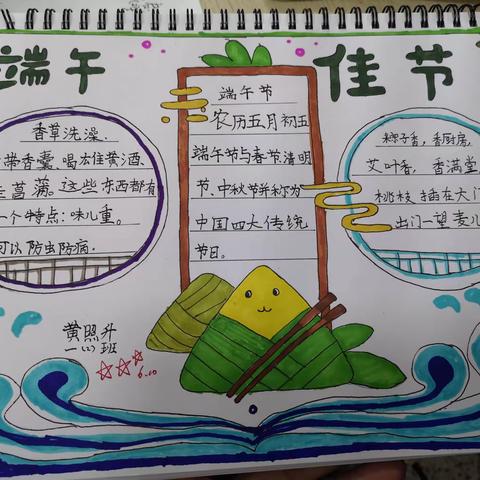 端午佳节
香草洗澡.
带香囊、喝雄黄酒、
菖蒲。这些东西都有
一个特点:味儿重。
可以防虫防病.
端午节
农历五月初五
端午节与春节清明
节、中秋节并称为
中国四大传统
节日。
粽子香,香厨房,
艾叶香,香满堂
桃枝插在大门
出门一望麦儿
黄照升
一(二)班
6.10